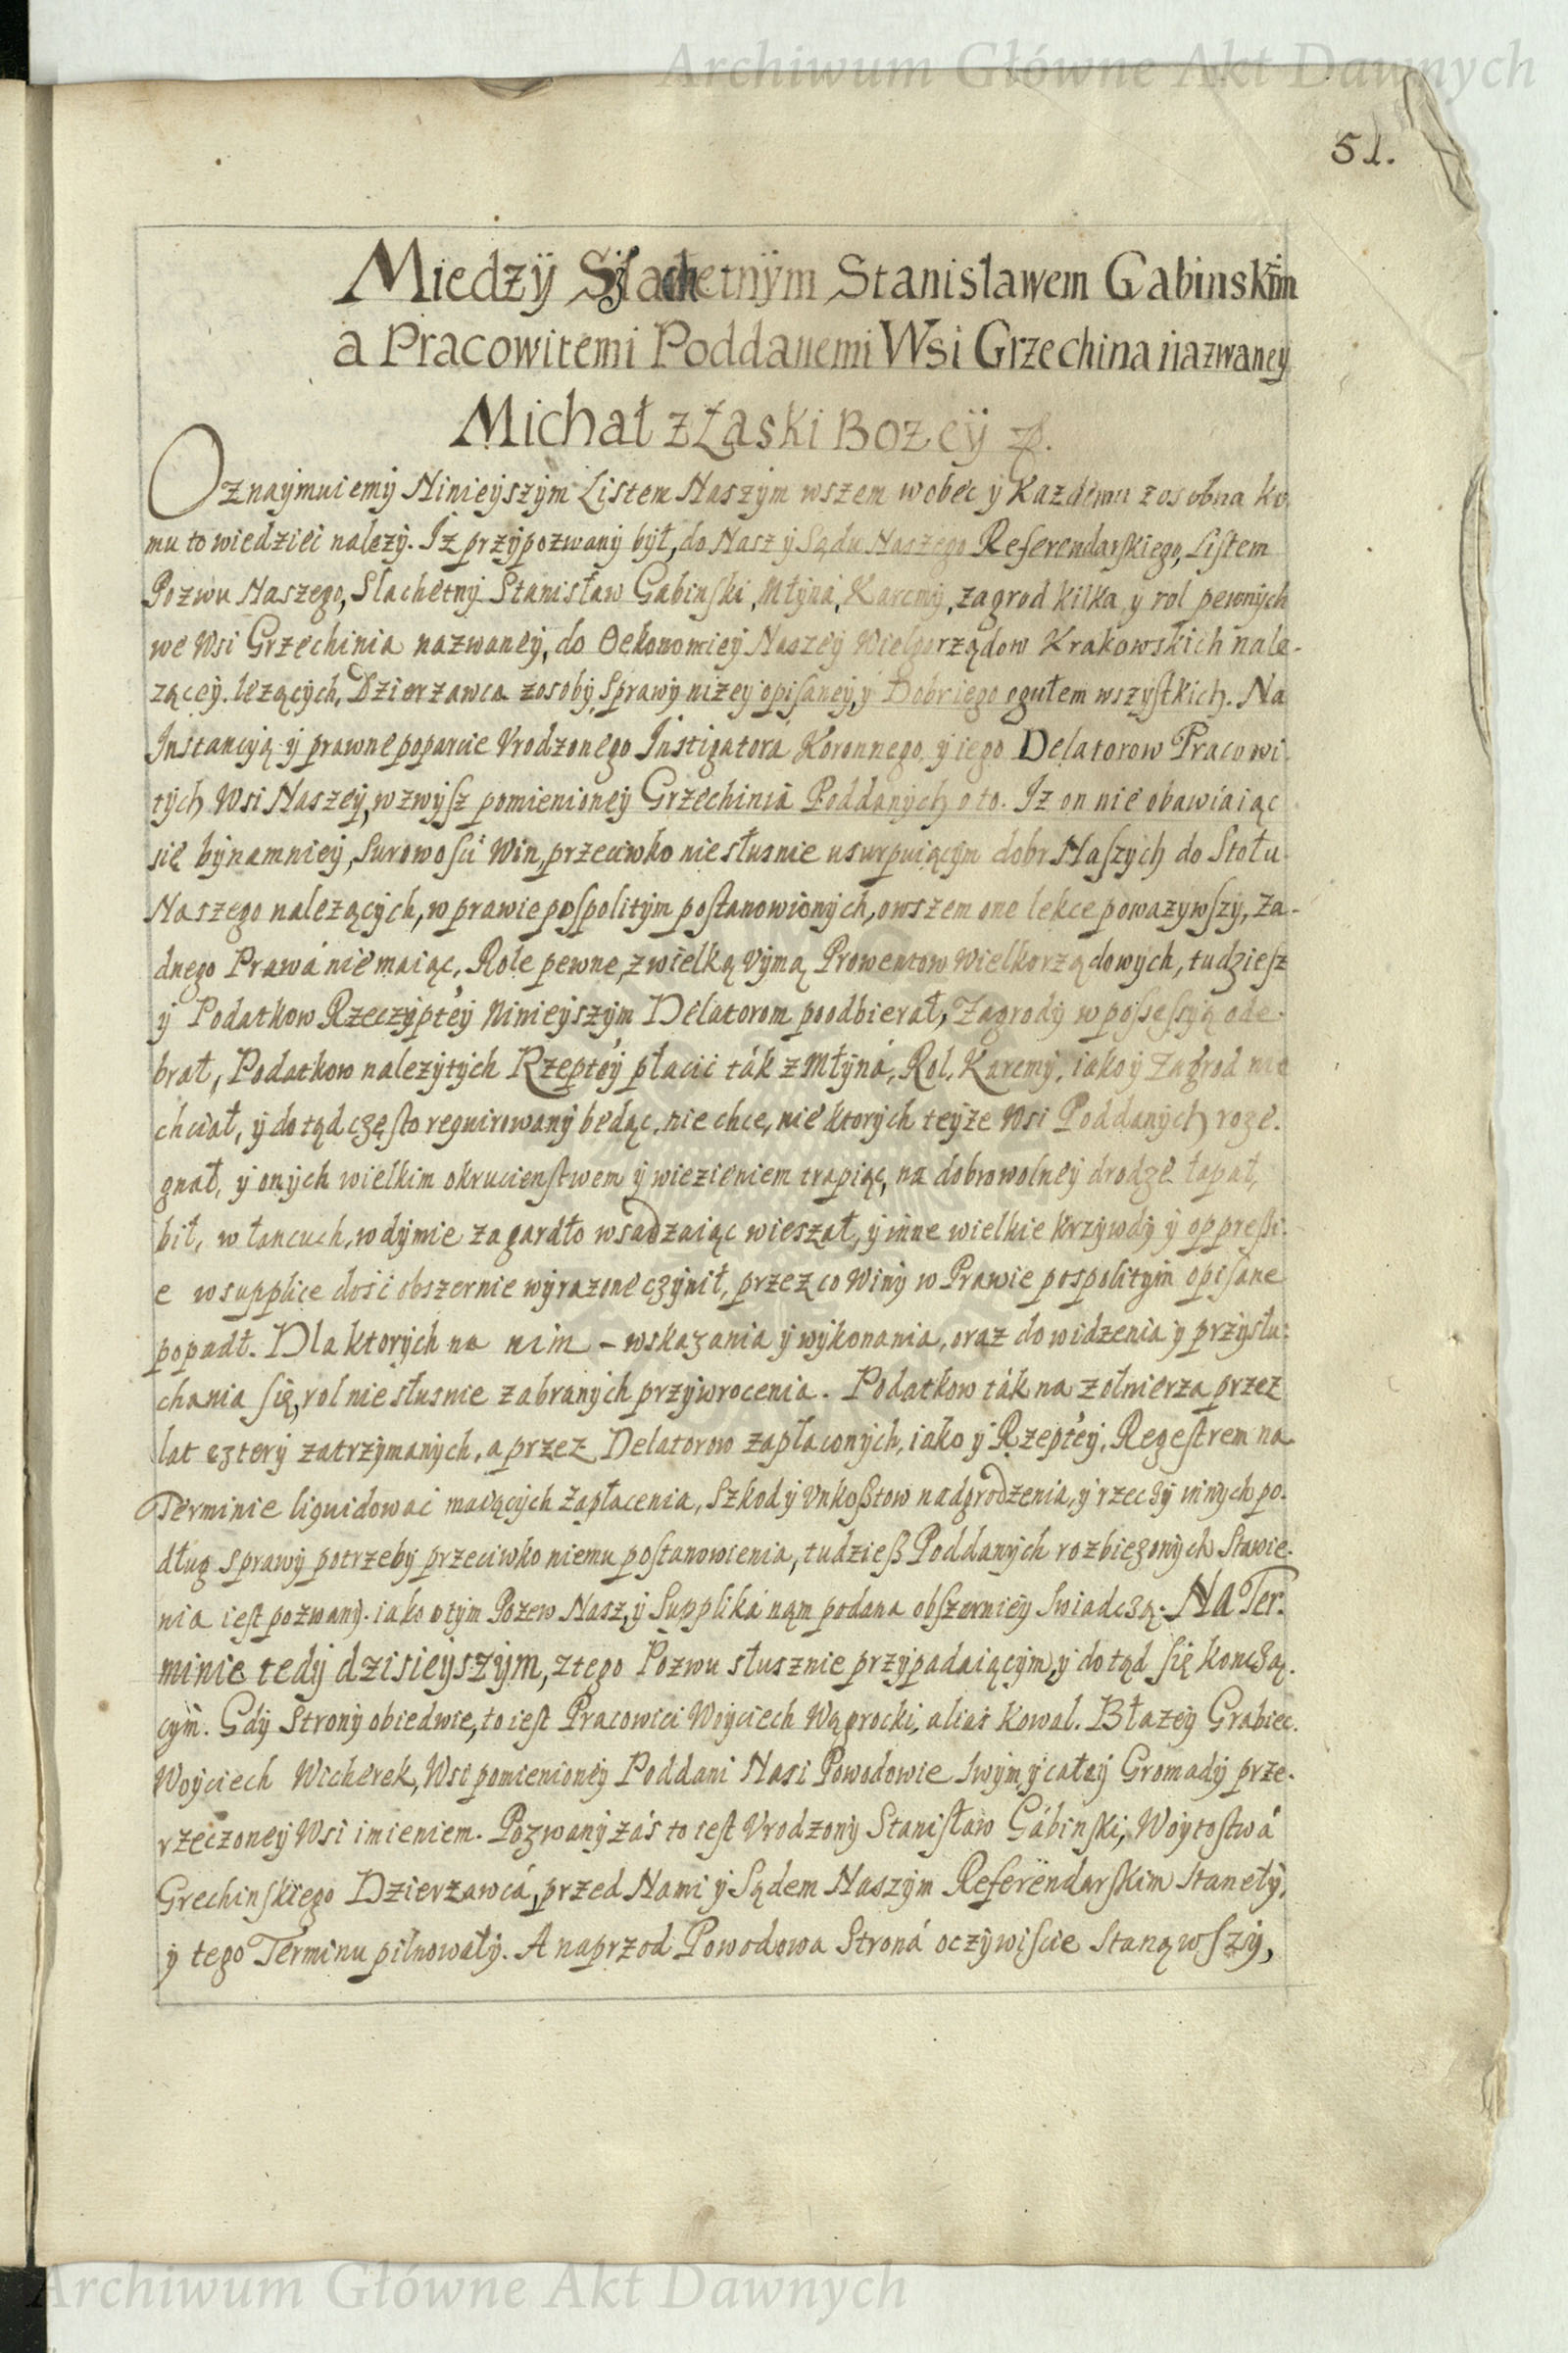 Archiwum Główne Akt Dawnych
51.
Miedzÿ Szlachetnÿm Stanisławem Gabinskim
a Pracowitemi Poddanemi Wsi Grzechina nazwaneÿ
Michał z Łaski Bozeÿ
Oznaÿmuiemÿ Ninieÿszÿm Listem Naszÿm wszem wobec ÿ Kazdemu zosobna ko.
mu to wiedziec nalezÿ. Iz przÿpozwanÿ bÿł, do Nasz ÿ Sądu Naszego Referendarskiego, Listem
Pozwu Naszego, Slachetnÿ Stanisław Gabinski, Młÿna, Karcmÿ, zagrod kilka ÿ rol pewnÿch
we Wsi Grzechinia nazwaneÿ, do Oekonomieÿ Naszeÿ Wielgorządow Krakowskich nale-
ząceÿ. lezącÿch, Dzierzawca zosobÿ, Sprawÿ nizeÿ opisaneÿ, ÿ Dobr iego ogułem wszÿstkich. Na
Instancÿą ÿ prawne poparcie Vrodzonego Instigatora Koronnego, ÿ iego Delatorow Pracowi-
tÿch Wsi Naszeÿ, wzwÿsz pomienioneÿ Grzechinia Poddanÿch oto. Iz on nie obawiaiąc
się bÿnamnieÿ, Surowosci Win, przeciwko niesłusnie usurpuiącÿm dobr Naszÿch do Stołu
Naszego nalezącÿch, w prawie pospolitÿm postanowionÿch, owszem one lekce powazÿwszÿ, Za-
dnego Prawá nie maiąc, Role pewne, z wielką Vÿmą Prowentow wielkorządowÿch, tudziesz
ÿ Podatkow Rzeczÿptéÿ Ninieÿszÿm Delatorom poodbierał, Zagrodÿ w possessÿą ode.
brał, Podatkow nalezÿtÿch Rzeptéÿ płacić ták z Młÿná, Rol, Karcmÿ, iako ÿ Zagrod nie
chciał, ÿ dotąd często requirowanÿ bedąc, nie chce, niektorÿch teÿze Wsi Poddanÿch roze.
gnał, ÿ onÿch wielkim okrucienstwem ÿ wiezieniem trapiąc, na dobrowolneÿ drodze łapał,
bił, w łancuch, w dÿmie za gardło wsadzaiąc wieszał, ÿ inne wielkie krzÿwdÿ ÿ oppressi.
e w supplice dosć obszernie wÿrazone czÿnił, przez co Winÿ w Prawie pospolitÿm opisane
popadł. Dla ktorÿch na nim – wskazania ÿ wÿkonania, oraz do widzenia ÿ przÿsłu:
chania się, rol niesłusnie zabranÿch przÿwrocenia. Podatkow ták na zołnierza przez
lat czterÿ zatrzÿmanÿch, a przez Delatorow zapłaconÿch, iako ÿ Rzeptéÿ, Regestrem na
Terminie liquidować maiącÿch zapłacenia, Szkod ÿ Vnkosztow nadgrodzenia, ÿ rzeczÿ innÿch po.
dług sprawÿ potrzebÿ przeciwko niemu postanowienia, tudziesz Poddanÿch rozbiegonÿch Stawie.
nia iest pozwanÿ. iako o tÿm Pozew Nasz, ÿ Supplika nąm podana obszernieÿ Swiadczą. Na Ter.
minie tedÿ dzisieÿszÿm, z tego Pozwu słusznie przÿpadaiącÿm, ÿ dotąd się koncżą.
cÿm. Gdÿ Stronÿ obiedwie, to iest Pracowici Woÿciech Wągrocki, alias Kowal. Błazeÿ Grabiec.
Woÿciech Wicherek, Wsi pomienioneÿ Poddani Nasi Powodowie Swÿm, ÿ całeÿ Gromadÿ prze.
rzeczoneÿ Wsi imieniem. Pozwanÿ zaś to iest Vrodzonÿ Stanisław Gábinski, Woÿtostwá
Grechinskiego Dzierzawcá, przed Nami ÿ Sądem Naszÿm Referendarskim Stanełÿ,
ÿ tego Terminu pilnowałÿ. A naprzod Powodowa Stroná oczÿwiscie Stanąwszÿ,
Archiwum Główne Akt Dawnych